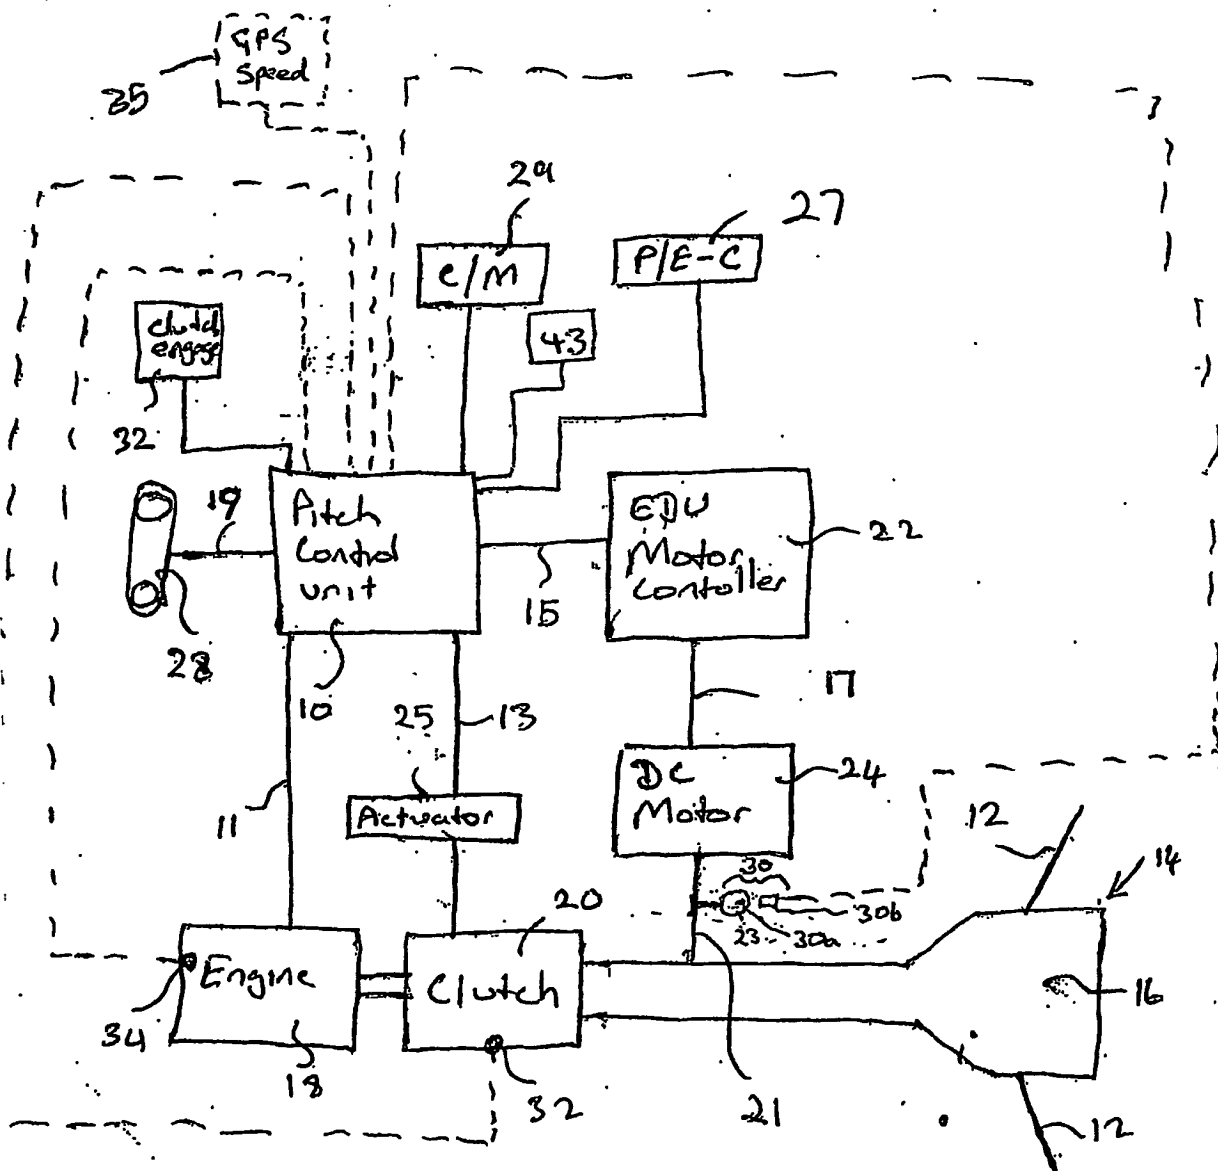 GPS
Speed
35
29
27
C/M
P/E-C
43
Clutch
engage
32
19
Pitch
Control
unit
EDU
Motor
Contoller
22
15
28
10
25
13
17
DC
Motor
24
11
Actuator
12
14
30
30b
20
23
30a
Engine
Clutch
16
34
18
32
21
12